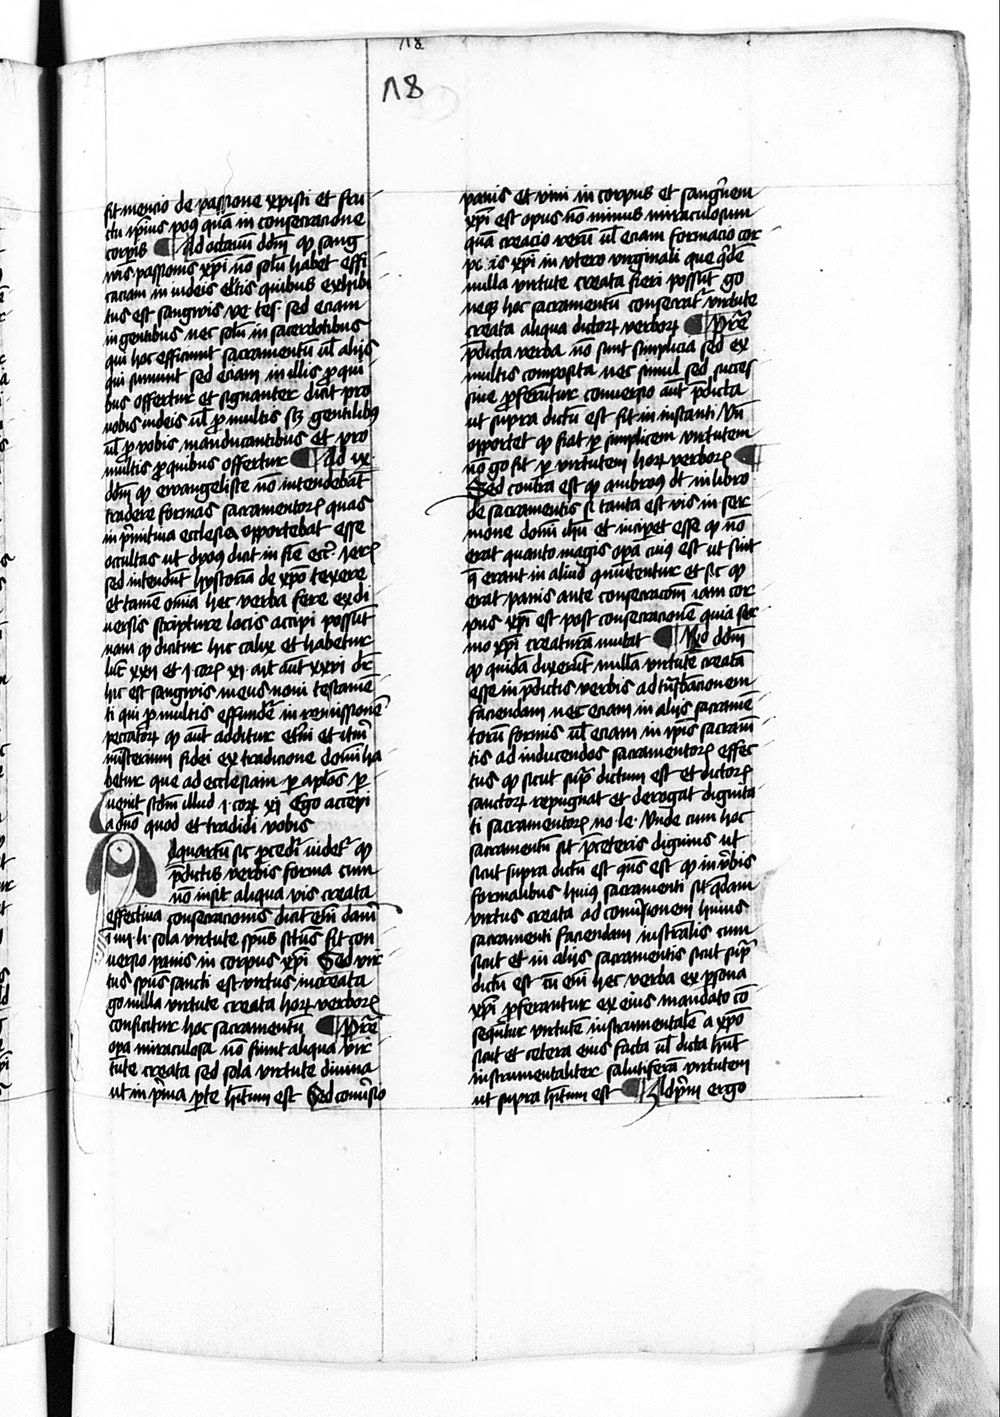 18
18
fit mencio de passione xpisti et fru
ctu ipius poꝰ quā in consecracione
corpis Ad octauū dōm qꝫ sang
wis passionis xpi nō solū habet effi
caciam in iudeis eltis quibus exhibi
tus est sangwis ve tes sed eciam
in gentibus nec solū in sacerdotibus
qui hoc efficiunt sacramentū ul alijs
qui sumunt sed eciam in illis ꝓ qui
bus offertur et signanter dicit pro
vobis iudeis ul ꝓ multis sꝫ gentilibꝰ
ul ꝓ vobis manducantibus et pro
multis ꝓ quibus offertur Ad ix
dōm qꝫ ewangeliste nō intendebāt
tradere formas sacramentoꝝ quas
in pͥmitiua ecclesia opportebat esse
occultas ut dyoꝰ dicit in fīe ecc ierͨ
sed intendūt hystoriā de xpō texere
et tamē omīa hec verba fere ex di
uersis scripture locis accipi possūt
nam qꝫ dicitur hic calix et habetur
luc xxii et i coꝝ xi ait aūt xxvi dr
hic est sangwis meus noui testamē
ti qui ꝓ multis effundēt in remissionē
peccatoꝝ qꝫ aūt additur etn̄i et itm̄
misterium fidei ex tradicione domi ha
betur que ad ecclesiam ꝑ aplos ꝑ
uenit scd̄m illud i coꝝ xi Ego accepi
a dn̄o quod et tradidi vobis
Ad quartū sic ꝓcedit̄ videt̄ qꝫ
p̄dictis verbis forma cum
nō insit aliqua vis creata
effectiua consecracionis dicit em̄ dam̄
i iiii li sola virtute spūs sctūs fit con
uersio panis in corpus xpi Sed vir
tus spūs sancti est virtus increata
go nulla virtute creata hoꝝ verboꝝ
conficitur hoc sacramentū Pret̄e
opa miraculosa nō fiunt aliqua vir
tute creata sed sola virtute diuina
ut in pͥma ꝑte hītum est Sed conu̓sio
panis et vini in corpus et sangwnem
xpi est opus nō minus miraculosum
quā creacio rerū ul eciam formacio cor
pis xpi in vtero virginali que qdē
nulla virtute creata fieri possūt go
neqꝫ hoc sacramentū consecrat̄ virtute
creata aliqua dictoꝝ verboꝝ Pret̄e
p̄dicta verba nō sunt simplicia sed ex
multis composita nec simul sed succes
siue ꝓferūtur conuersio aūt p̄dicta
ut supra dictū est fit in instanti Vn̄
opportet qꝫ fiat ꝑ simplicem virtutem
nō go fit ꝑ virtutem hoꝝ verboꝝ
Sed contra est qꝫ ambroꝰ dt in libro
de sacramentis si tanta est vis in ser
mone domī ihū ut inciꝑet esse qꝫ nō
erat quanto magis opā cuiꝰ est ut sint
q̄ erant in aliud qmutentur et sic qꝫ
erat panis ante consecracōm iam cor
pus xpi est post consecracionē quia ser
mo xpi creaturā mutat Rx̄o dd̄m
qꝫ quidā dixerūt nullā virtutē creatā
esse in p̄dictis verbis ad tn̄sbacionem
faciendam nec eciam in alijs sacramē
torū formis ul eciam in ip̄is sacram̄
tis ad inducendos sacramentoꝝ effec
tus qꝫ sicut supͣ dictum est et dictoꝝ
sanctoꝝ repugnat et derogat dignita
ti sacramentoꝝ no le Vnde cum hoc
sacramentū sit p̄ceteris dignius ut
sicut supra dictū est qn̄s est qꝫ in v̓bis
formalibus huiꝰ sacramenti sit qdam
virtus creata ad conu̓sionem huius
sacramenti faciendam instr̄alis cum
sicut et in alijs sacramentis sicut supͣ
dictū est cū em̄ hec verba ex ꝑsona
xpi ꝓferantur ex eius mandato cō
seqntur virtutē instrumentalē a xpō
sicut et cetera eius facta ul dicta hn̄t
instrumentaliter salutiferā virtutem
ut supra hītum est Ad pͥm ergo